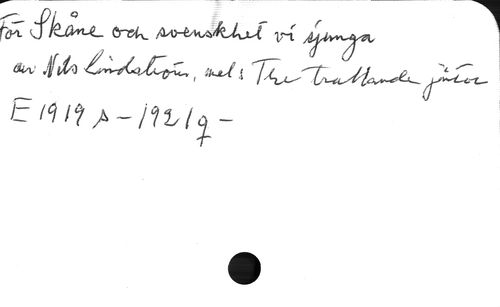 För Skåne och svenskhet vi sjunga
av Nils Lindström, mel: Tre trallande jäntor
E 1919 s - 1921 q -